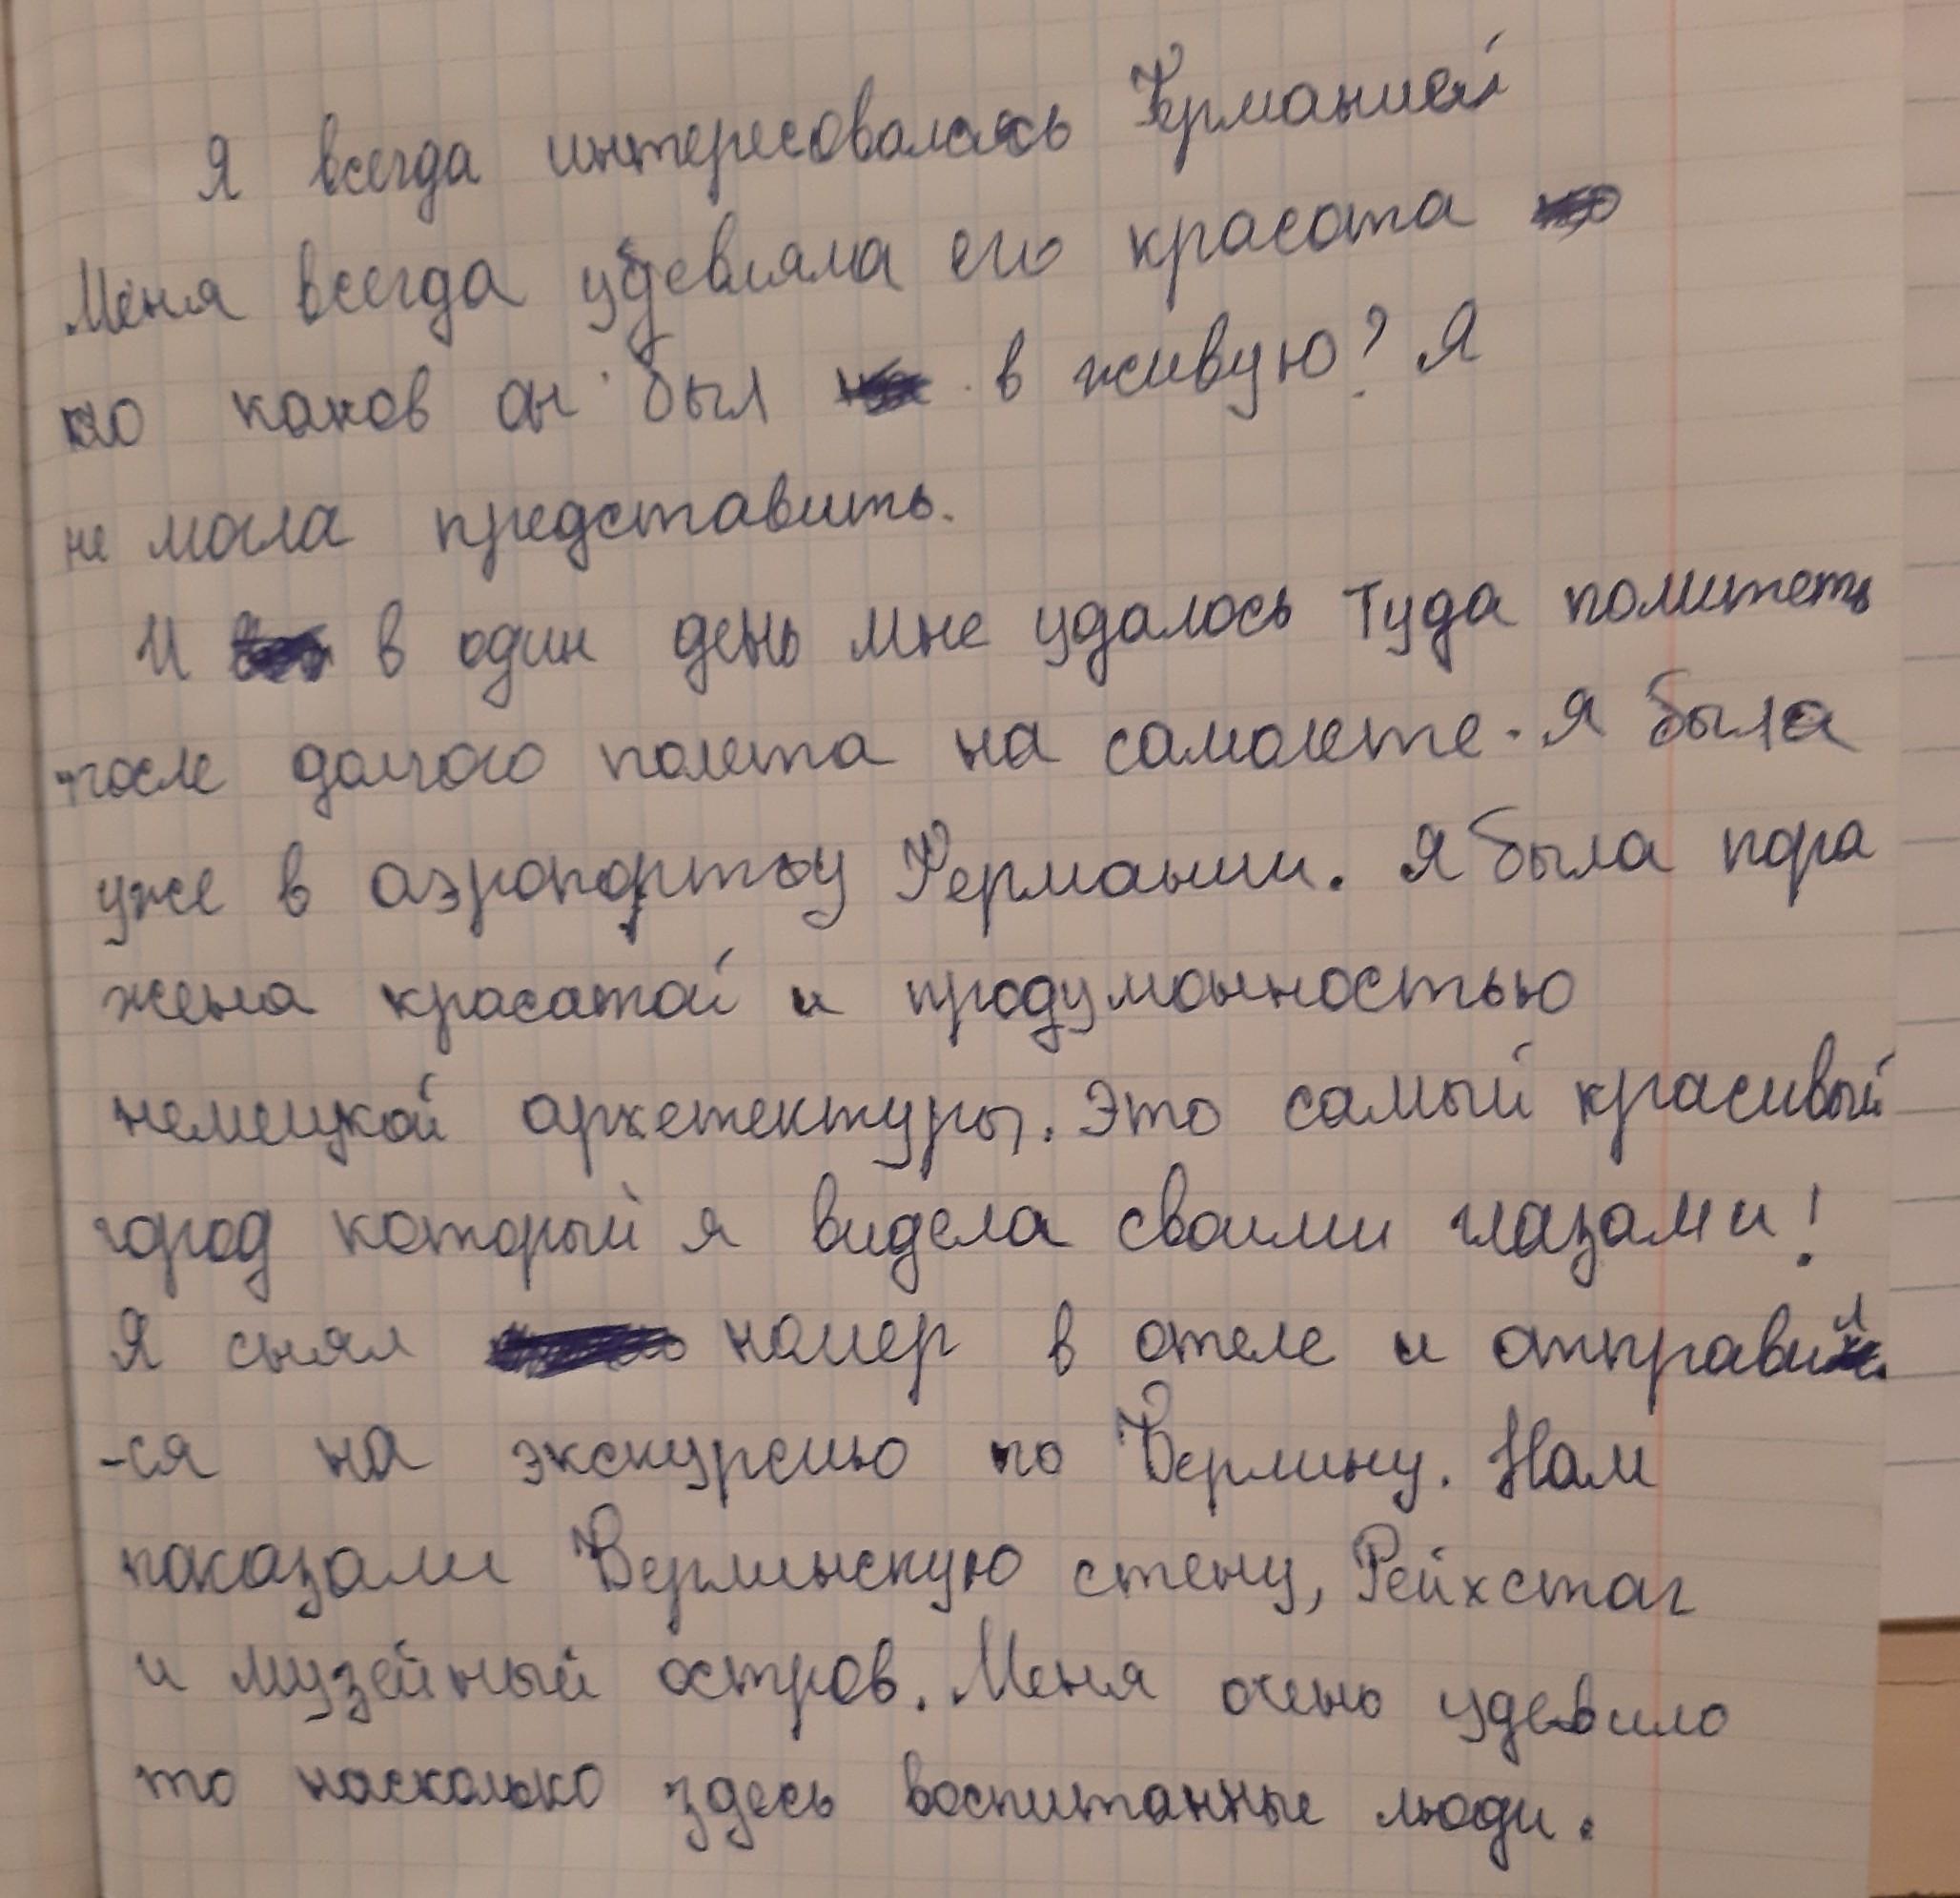 Я всегда интересовалась Германией
Меня всегда удевляла его красота
но каков он был в живую? Я
не могла представить.
И в один день мне удалось туда полететь
после долгого полета на самолете. Я была
уже в аэропорту Германии. Я была пора
жена красатой и продуманностью
немецкой архетектуры. Это самый красивый
город который я видела своими глазами!
Я снял номер в отеле и отправил
-ся на экскурсию по Берлину. Нам
показали Берлинскую стену, Рейхстаг
и музейный остров. Меня очень удевило
то насколько здесь воспитанные люди.